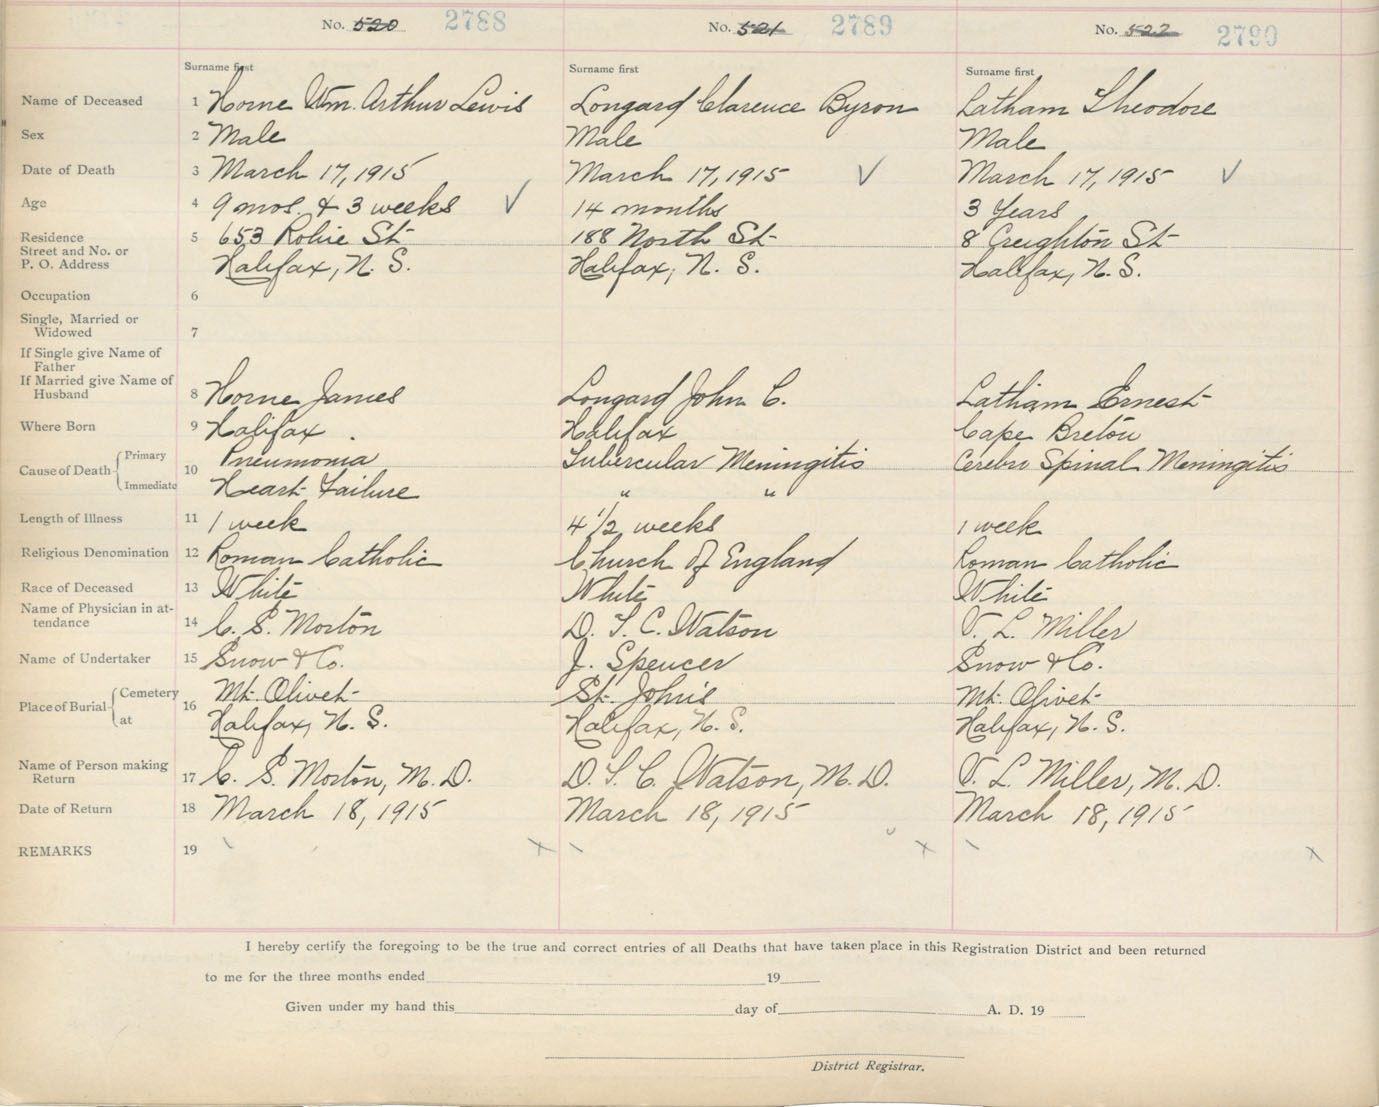 No. 520 2788 No. 521 2789 No. 522 2790
Surname first Surname first Surname first
Name of Deceased 1 Horne Wm. Arthur Lewis Longard Clarence Byron Latham Theodore
Sex 2 Male Male Male
Date of Death 3 March 17, 1915 March 17, 1915 March 17, 1915
Age 4 9 mos. & 3 weeks 14 months 3 Years
Residence 5 653 Robie St 188 North St 8 Creighton St
Street and No. or
P. O. Address Halifax, N. S. Halifax, N. S. Halifax, N. S.
Occupation 6
Single, Married or
Widowed 7
If Single give Name of
Father
If Married give Name of
Husband 8 Horne James Longard John C. Latham Ernest
Where Born 9 Halifax. Halifax Cape Breton
Cause of Death Primary 10 Pneumonia Tubercular Meningitis Cerebro Spinal Meningitis
Immediate Heart Failure " "
Length of Illness 11 1 week 4 1/2 weeks 1 week
Religious Denomination 12 Roman Catholic Church of England Roman Catholic
Race of Deceased 13 White White White
Name of Physician in at-
tendance 14 C. S. Morton D. T. C. Watson V. L. Miller
Name of Undertaker 15 Snow & Co. J. Spencer Snow & Co.
Place of Burial Cemetery 16 Mt. Olivet St. John's Mt. Olivet
at Halifax, N. S. Halifax, N. S. Halifax, N. S.
Name of Person making
Return 17 C. S. Morton, M. D. D. T. C. Watson, M. D. V. L. Miller, M. D.
Date of Return 18 March 18, 1915 March 18, 1915 March 18, 1915
REMARKS 19
I hereby certify the foregoing to be the true and correct entries of all Deaths that have taken place in this Registration District and been returned
to me for the three months ended 19
Given under my hand this day of A. D. 19
District Registrar.